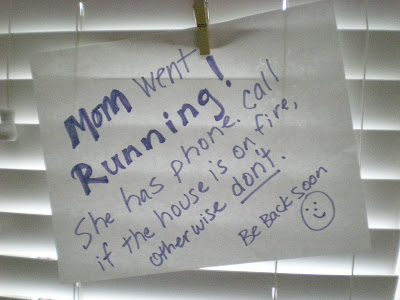 Mom went
Running!
She has phone. Call
if the house is on fire,
otherwise don't.
Be Back Soon